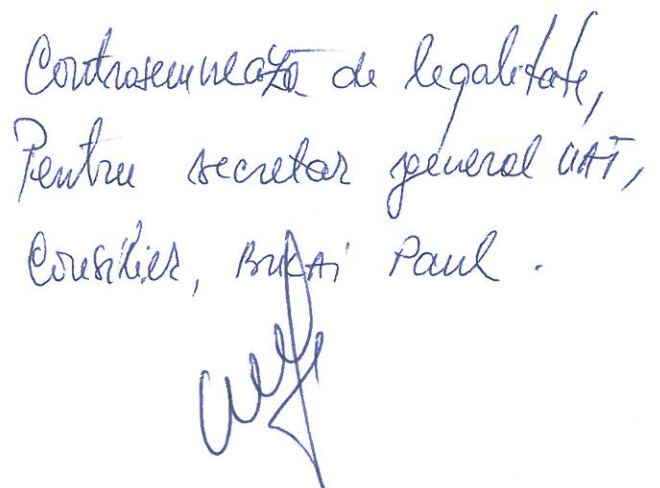 Contrasemnează de legalitate,
Pentru secretar general UAT,
Consilier, Paul .